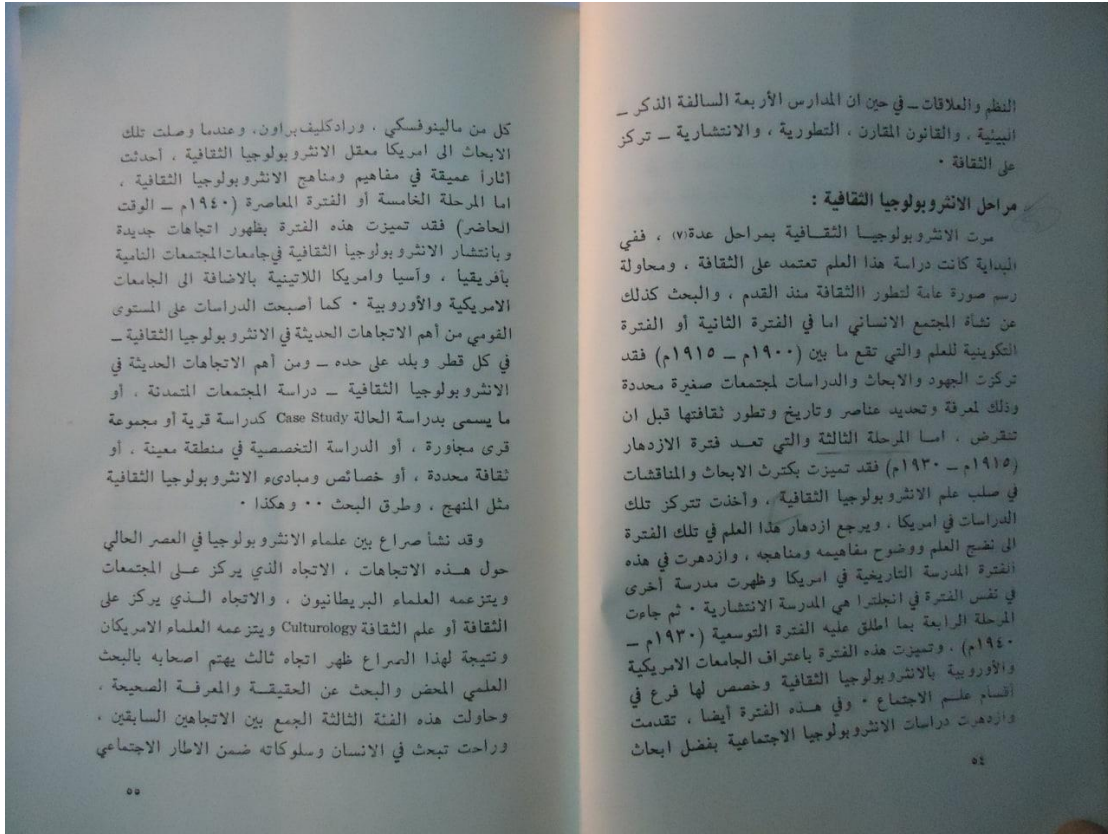 النظم والعلاقات ــ في حين ان المدارس الأربعة السالفة الذكر ــ
البيئية ، والقانون المقارن ، التطورية ، والانتشارية ــ تركز
على الثقافة ٠
مراحل الانثروبولوجيا الثقافية :
مرت الانثروبولوجيـا الثقـافية بمراحل عدة(٧) ، ففي
البداية كانت دراسة هذا العلم تعتمد على الثقافة ، ومحاولة
رسم صورة عامة لتطور االثقافة منذ القدم ، والبحث كذلك
عن نشأة المجتمع الانساني اما في الفترة الثانية أو الفترة
التكوينية للعلم والتي تقع ما بين (١٩٠٠م ــ ١٩١٥م) فقد
تركزت الجهود والابحاث والدراسات لمجتمعات صغيرة محددة
وذلك لمعرفة وتحديد عناصر وتاريخ وتطور ثقافتها قبل ان
تنقرض ، امـا المرحلة الثالثة والتي تعـد فترة الازدهار
(١٩١٥م ــ ١٩٣٠م) فقد تميزت بكثرت الابحاث والمناقشات
في صلب علم الانثروبولوجيا الثقافية ، وأخذت تتركز تلك
الدراسات في امريكا ، ويرجع ازدهار هذا العلم في تلك الفترة
الى نضج العلم ووضوح مفاهيمه ومناهجه ، وازدهرت في هذه
الفترة المدرسة التاريخية في امريكا وظهرت مدرسة أخرى
في نفس الفترة في انجلترا هي المدرسة الانتشارية ٠ ثم جاءت
المرحلة الرابعة بما اطلق عليه الفترة التوسعية (١٩٣٠م ــ
١٩٤٠م) ، وتميزت هذه الفترة باعتراف الجامعات الامريكية
والأوروبية بالانثروبولوجيا الثقافية وخصص لها فرع في
أقسام علـم الاجتماع ٠ وفي هـذه الفترة أيضا ، تقدمت
وازدهرت دراسات الانثروبولوجيا الاجتماعية بفضل ابحاث
٥٤
كل من مالينوفسكي ، ورادكليف براون، وعندما وصلت تلك
الابحاث الى امريكا معقل الانثروبولوجيا الثقافية ، أحدثت
اثاراً عميقة في مفاهيم ومناهج الانثروبولوجيا الثقافية ،
اما المرحلة الخامسة أو الفترة المعاصرة (١٩٤٠م ــ الوقت
الحاضر) فقد تميزت هذه الفترة بظهور اتجاهات جديدة
وبانتشار الانثروبولوجيا الثقافية في جامعات المجتمعات النامية
بأفريقيا ، وآسيا وامريكا اللاتينية بالاضافة الى الجامعات
الامريكية والأوروبية ٠ كما أصبحت الدراسات على المستوى
القومي من أهم الاتجاهات الحديثة في الانثروبولوجيا الثقافية ــ
في كل قطر وبلد على حده ــ ومن أهم الاتجاهات الحديثة في
الانثروبولوجيا الثقافية ــ دراسة المجتمعات المتمدنة ، أو
ما يسمى بدراسة الحالة Case Study كدراسة قرية أو مجموعة
قرى مجاورة ، أو الدراسة التخصصية في منطقة معينة ، أو
ثقافة محددة ، أو خصائص ومبادىء الانثروبولوجيا الثقافية
مثل المنهج ، وطرق البحث ٠٠ وهكذا ٠
وقد نشأ صراع بين علماء الانثروبولوجيا في العصر الحالي
حول هــذه الاتجاهات ، الاتجاه الذي يركز عـلى المجتمعات
ويتزعمه العلماء البريطانيون ، والاتجاه الـذي يركز على
الثقافة أو علم الثقافة Culturology ويتزعمه العلماء الامريكان
ونتيجة لهذا الصراع ظهر اتجاه ثالث يهتم اصحابه بالبحث
العلمي المحض والبحث عن الحقيقـة والمعرفـة الصحيحة ،
وحاولت هذه الفئة الثالثة الجمع بين الاتجاهين السابقين ،
وراحت تبحث في الانسان وسلوكاته ضمن الاطار الاجتماعي
٥٥